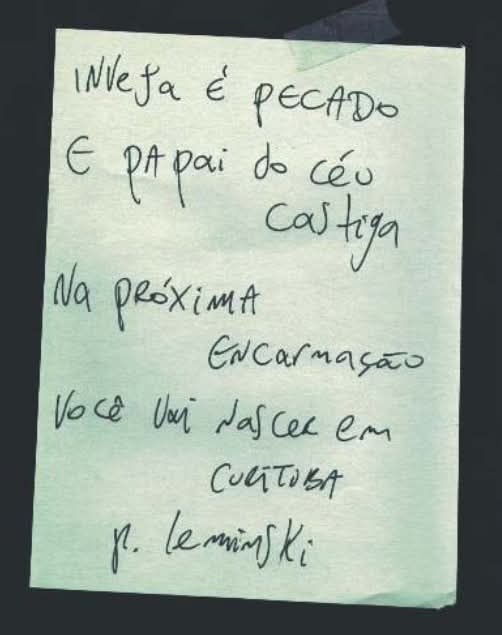 INVEJA É PECADO
E PAPAI do CÉU
CASTIGA
NA PRÓXIMA
ENCARNAÇÃO
VOCÊ VAI NASCER EM
CURITIBA
p. leminski